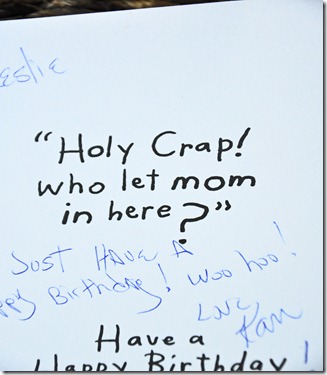 eslie
“Holy Crap!
who let mom
in here?”
Just Have a
ppy Birthday! woo hoo!
Love,
Kan
Have a
Happy Birthday!